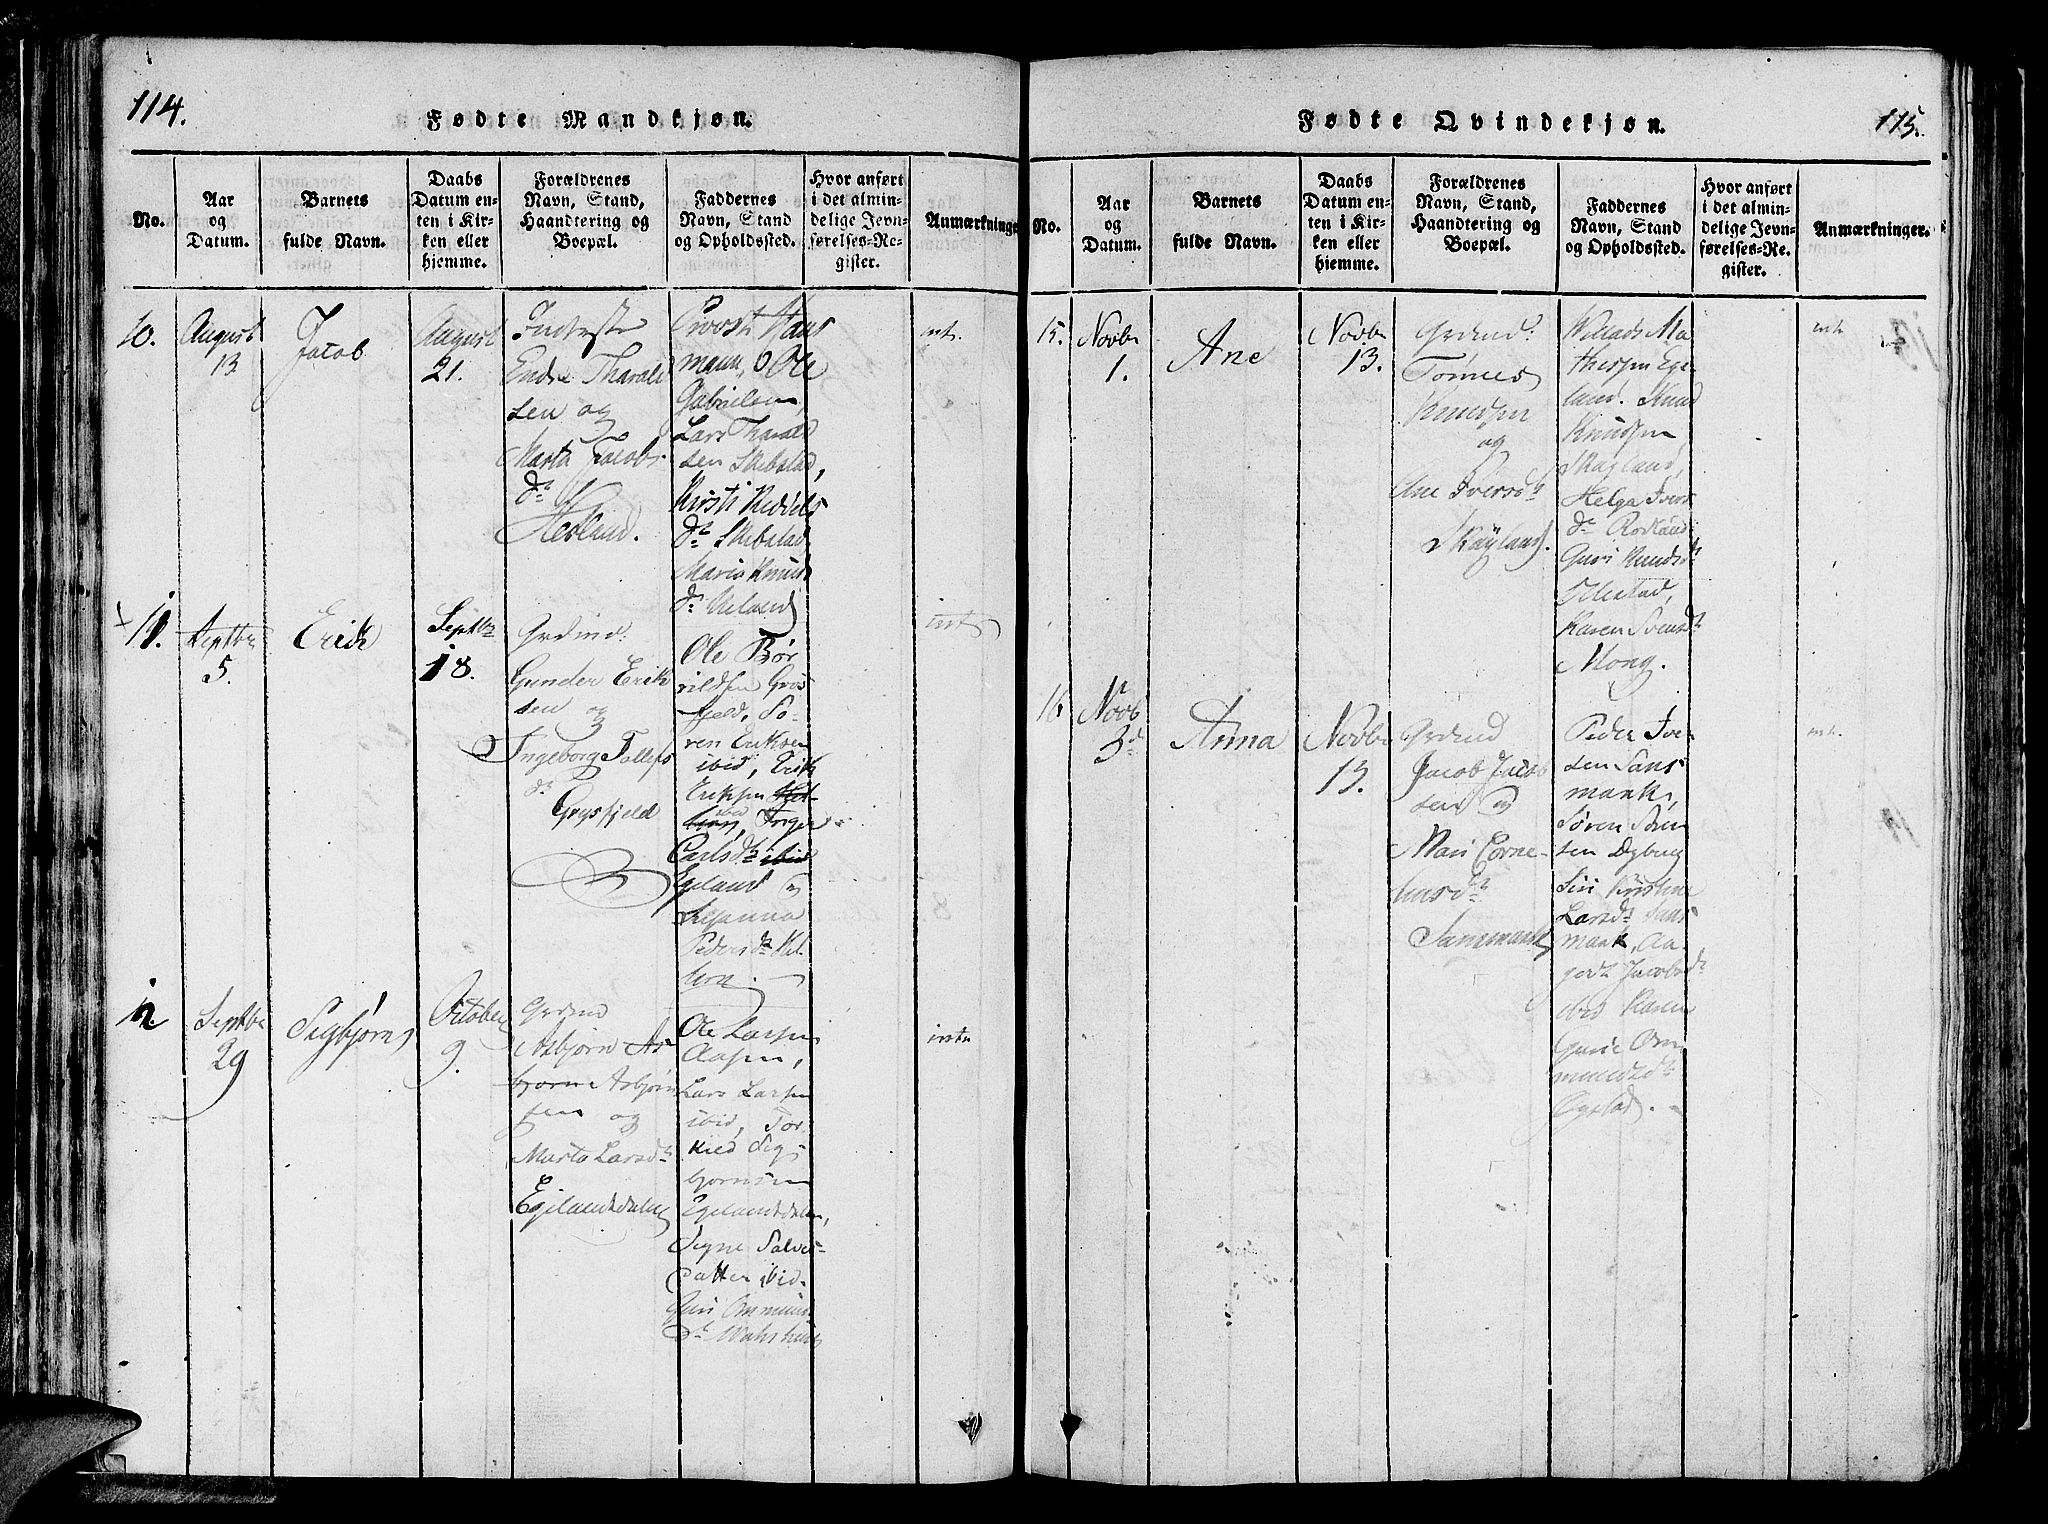 114.
Fødte Mandkjøn.
No.
Aar
og
Datum.
Barnets
fulde Navn.
Daabs
Datum en-
ten i Kir-
ken eller
hjemme.
Forældrenes
Navn, Stand,
Haandtering og
Boepæl.
Faddernes
Navn, Stand
og Opholdssted.
Hvor anført
i det almin-
delige Jevn-
førelses-Re-
gister.
Anmærkninge
10.
August
13
Jacob
August
21.
Endre Thorald
sen og
Marta Jacobs
dr
Hesland.
Provst Haus
mann, Ole
Gabrielsen,
Lars Tharald
sen Skibstad,
Kirsti Keddels
dr Skibstad
Maria Knuds
dr
int.
11.
Septbr
5.
Erick
Septbr
18.
Grdmd.
Gunder Erik
sen og
Ingeborg Tollefs
dr
Grøsfjeld
Ole Bør
rildsen Grøs
fjeld, So-
ren Eriksen
ibid, Erik
Eriksen
ibid, Inger
Carlsdr ibid
Egeland og
Susanna
Pedersdr Hel
leren.
int.
12.
Septbr
29
Sigbjørn
October
9.
Grdmd
Asbjørn As
bjorns Asbjørn
sen og
Marta Larsdr
Egelandsdalen
Ole Larsen
Aasen,
Lars Larsen
ibid, Tor
kied Sig
bjornsen
Egelandsdalen,
Signe Salves
datter ibid.
Guri Ommunds
dr
intr
Fødte Qvindekjøn.
115.
No.
Aar
og
Datum.
Barnets
fulde Navn.
Daabs
Datum en-
ten i Kir-
ken eller
hjemme.
Forældrenes
Navn, Stand,
Haandtering og
Boepæl.
Faddernes
Navn, Stand
og Opholdssted.
Hvor anført
i det almin-
delige Jevn-
førelses-Re-
gister.
Anmærkninger.
15.
Novbr
1.
Ane
Novbr
13.
Grdmd.
Tønnes
Knudsen
og
Ane Iversdr
Skayland.
Willads Ma
thesen Ege-
land. Knud
Knudsen
Skayland,
Helga Ivers
dr Rodland
Guri Knudsdr
Karen Svensdr
Mong.
int.
16.
Novb
3d
Anna
Novbr
13.
Grdmd
Jacob Jacob
sen og
Mari Corne-
liusdr
Sannemark
Peder Ive-
sen Sans
mark,
Søren Sørn
sen
Siri Kristine
Larsdr Sans
mark, Aa-
godt Jacobsdr
ibid Karen
Gurie Om-
mundsdr
int.